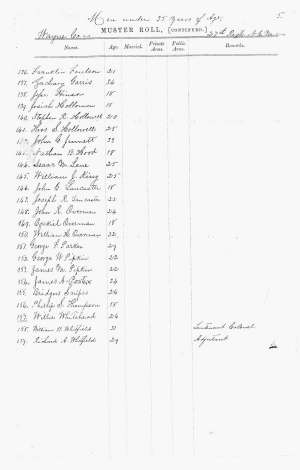 Men under 35 Years of Age. 5
MUSTER ROLL, (CONTINUED.)
Wayne Co 27th Regt N.C. Mil
Name. Age Married. Private Arms. Public Arms. Remarks.
136. Franklin 21
137. Zachary Garris 24
138. John Hinson 18
139. Josiah Holloman 18
140. Stephen R. Hollowell 20
141. Thos S. Hollowell 25
142. John C. 23
143. Nathan B. Hood 18
144. Isaac M. Lane 25
145. William J. King 25
146. John C. Lancaster 18
147. Joseph R. Lancaster 23
148. John R. Overman 24
149. Ezekiel Overman 18
150. William H. Overman 22
151. George F. Parker 29
152. George W. Pipkin 22
153. James M. Pipkin 22
154. James A. 24
155. Bridgers Snipes 26
156. Philip S. Thompson 18
157. Willie Whitehead 24
158. William H. Whitfield 31 Lieutenant Colonel
159. Richard A. Whitfield 29 Adjutant